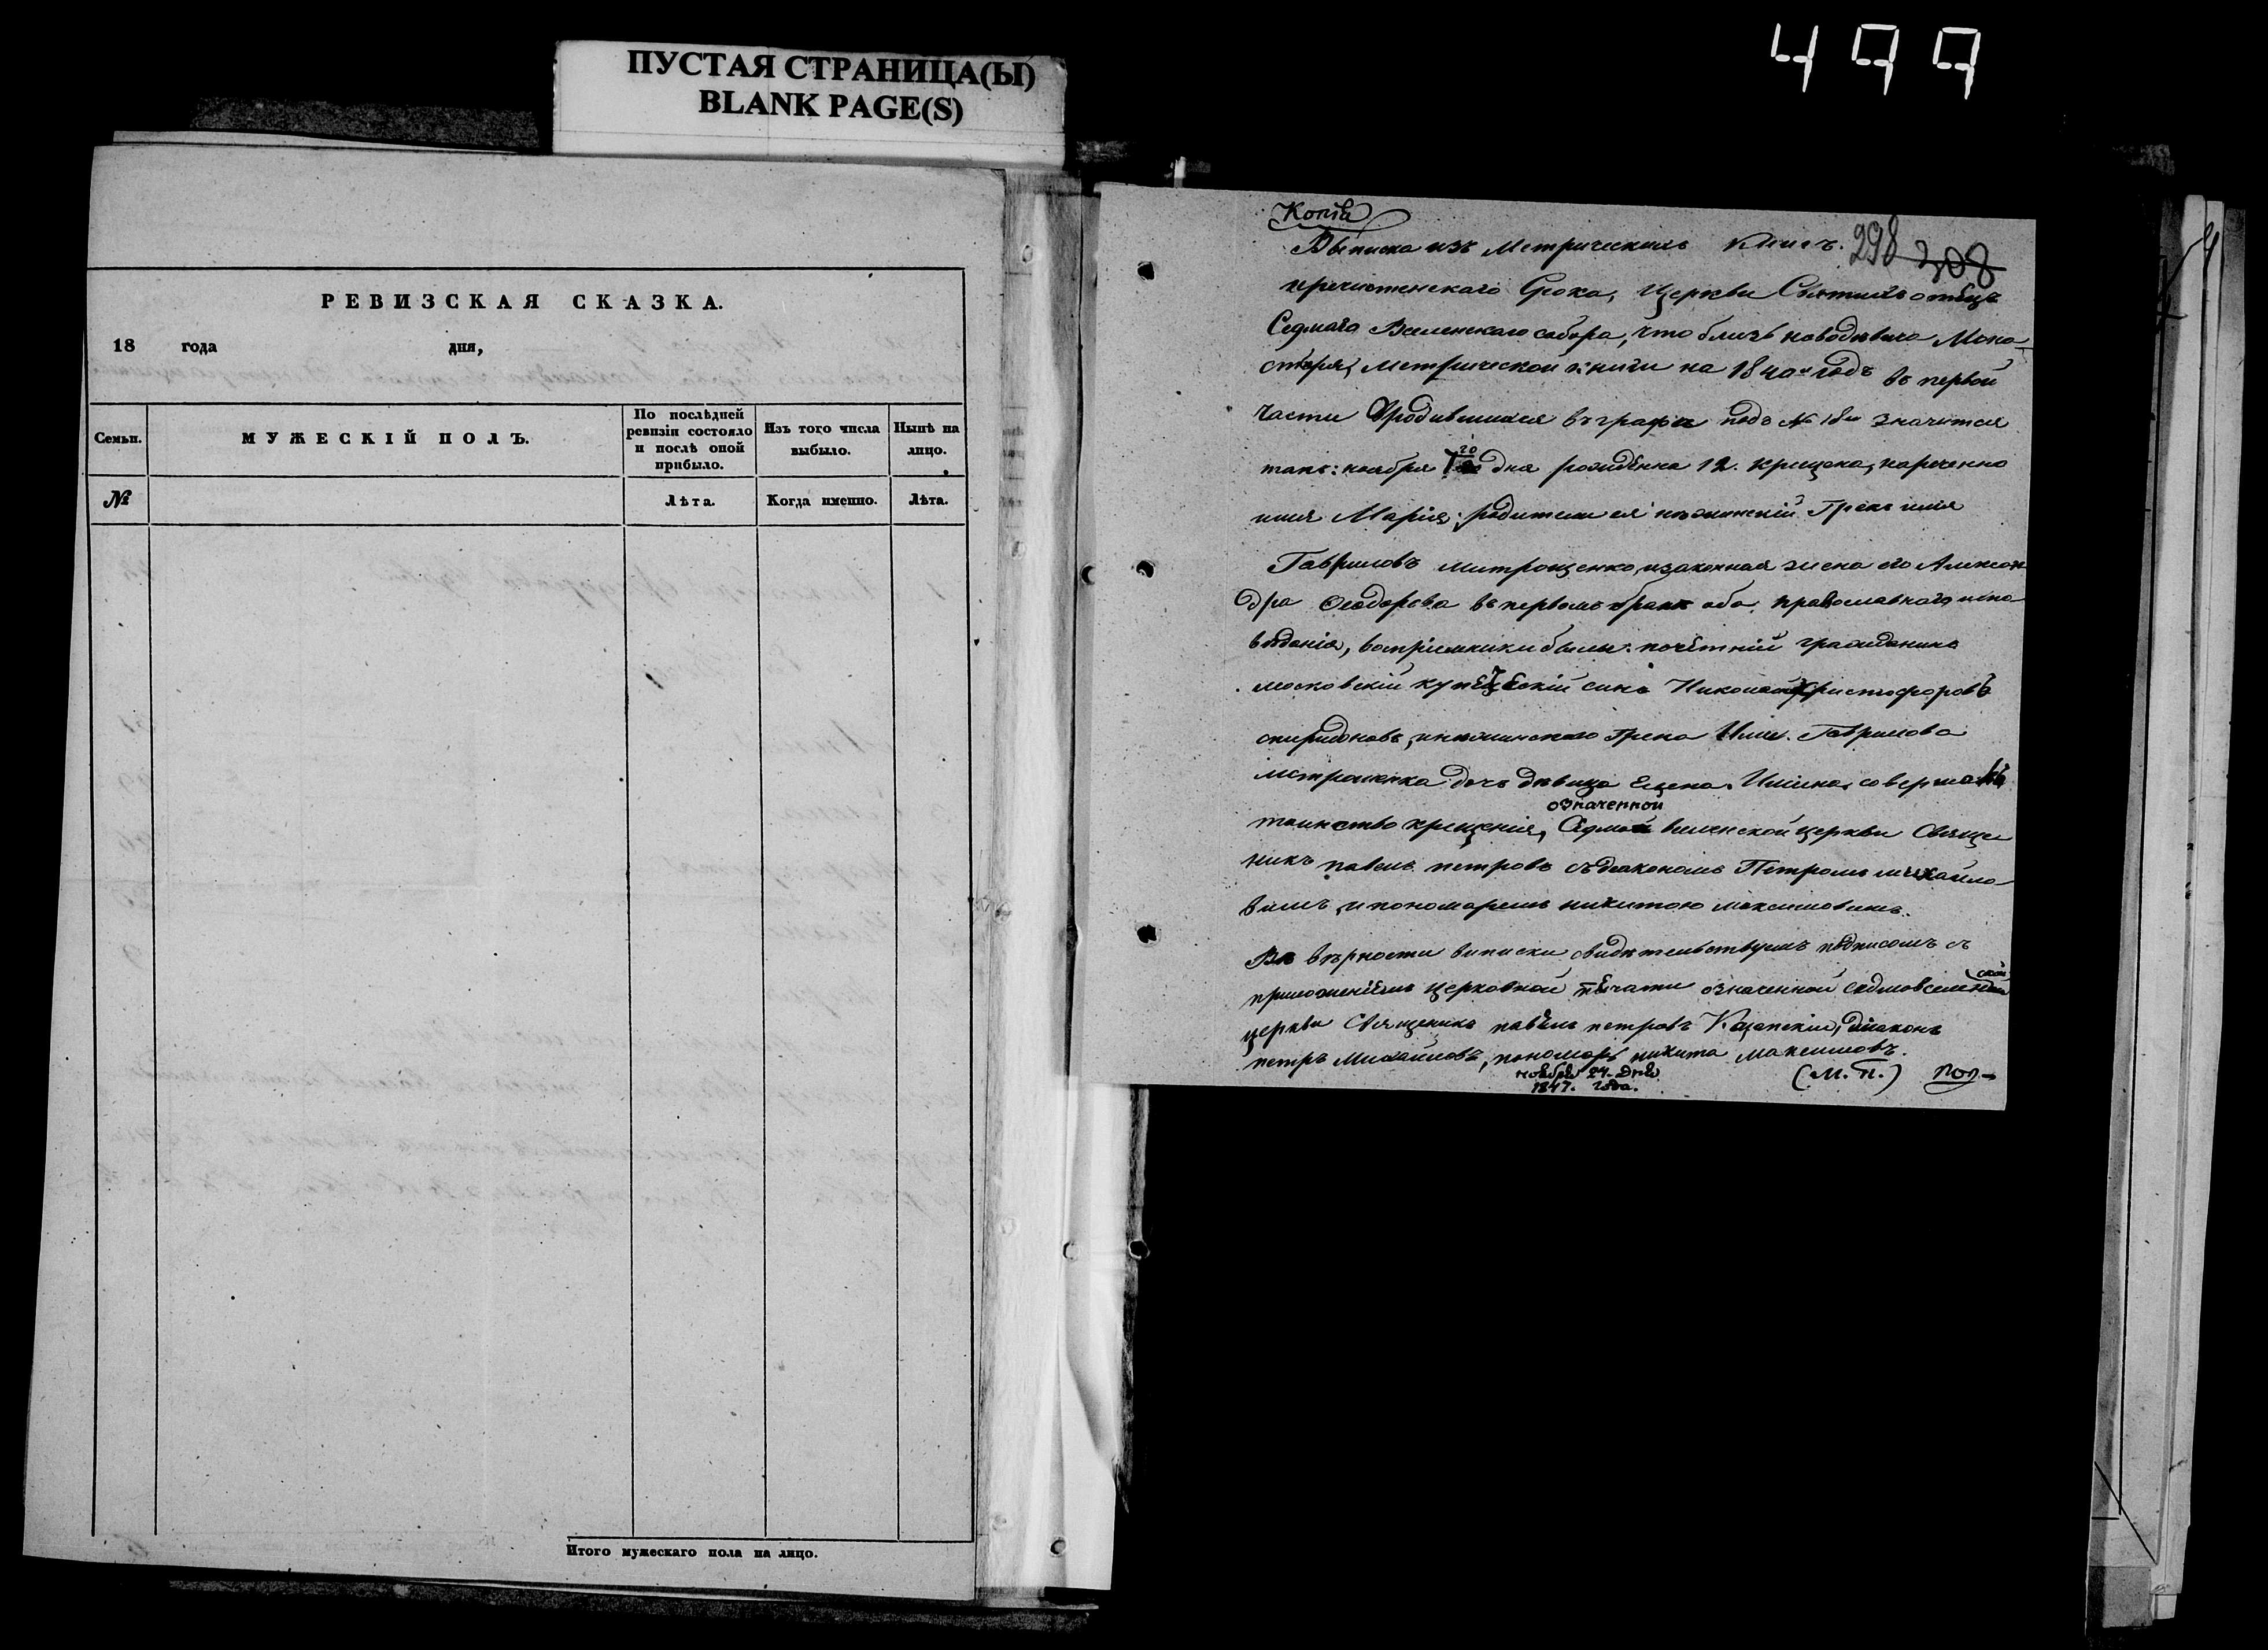 499
ПУСТАЯ СТРАНИЦА(Ы)
BLANK PAGE(S)
РЕВИЗСКАЯ СКАЗКА.
18 года дня,
Семьи.
МУЖЕСКІЙ ПОЛЪ.
По послѣдней
ревизіи состояло
и послѣ оной
прибыло.
Изъ того числа
выбыло.
Нынѣ на
лицо.
№
Лѣта.
Когда именно.
Лѣта.
Итого мужескаго пола на лицо.
Копія
298 308
Выписка изъ Метрическихъ Книгъ.
пречистенскаго Срока, Церкви Святыхъ отецъ
Седмаго Вселенскаго собора, что близъ новодѣвича Мона-
стыря, Метрической книги на 1840 годъ въ первой
части о родившихся въ графѣ подъ № 18 значится
такъ: ноября 20 дня рожденна 12. крещена, нареченно
имя Марія; родители ея нѣжинскій Грекъ илія
Гавриловъ митрощенко, и законная жена его Алексан
дра Феодорова въ первомъ бракѣ оба православнаго испо
вѣданія, воспріемники были: почетній гражданинъ
московскій купеческій синъ Николай Христофоровъ
спиридоновъ, и нѣжинского Грека Иліи Гаврилова
митрошенка дочь дѣвица Елена Ильина, совершалъ
таинство крещенія, означенной Седмой вселенской церкви Свяще
никъ павелъ петровъ съ діакономъ Петромъ михайло
вимъ, и пономаремъ никитою максимовимъ.
Въ вѣрности виписки свидѣтельствуемъ подписомъ съ
приложеніемъ церковной печати означенной седмовселенской
церкви Священикъ павелъ петровъ Казанскій, діаконъ
петръ Михайловъ, пономарь никита максимовъ.
ноября 24. дня
1847. года.
(М. п.) пол-